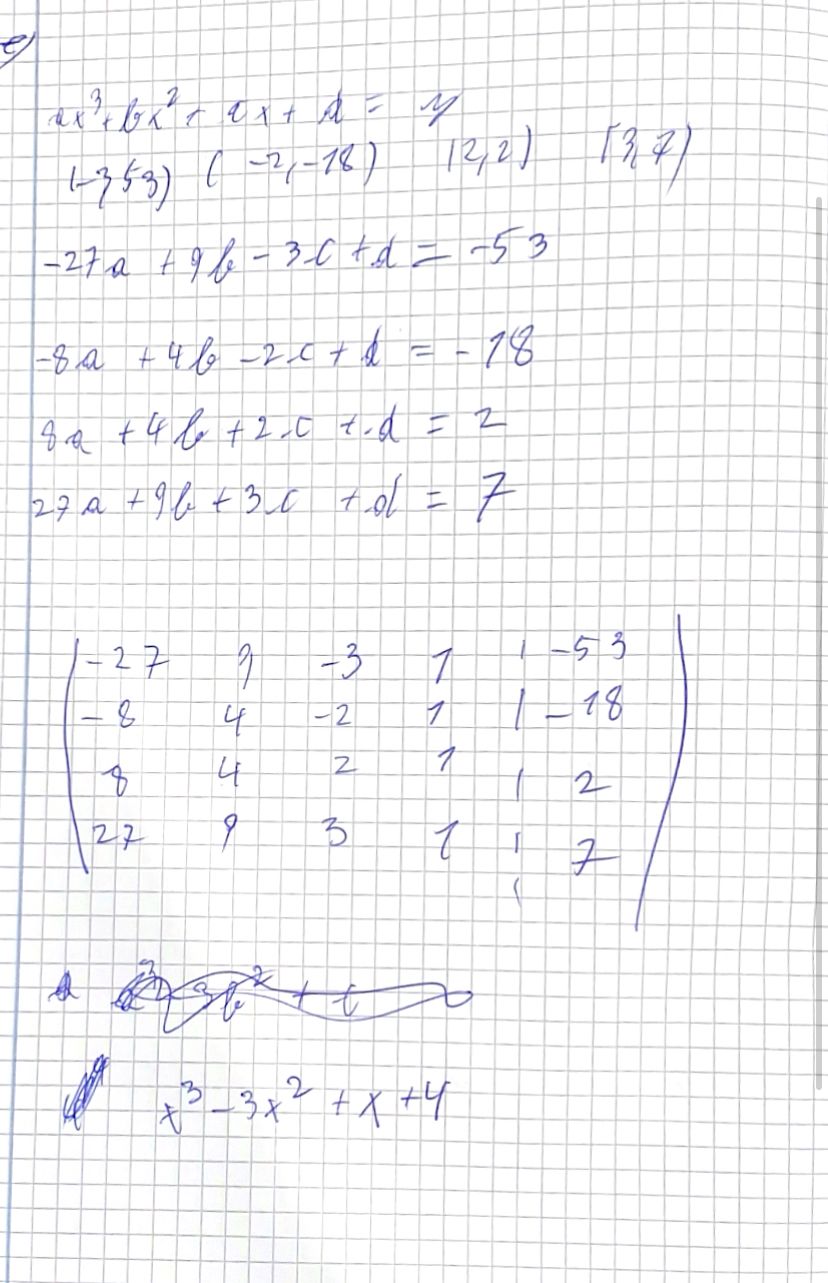 e)
ax³ + bx² + cx + d = y
(-3,53) (-2,-18) (2,2) (3,7)
-27a + 9b - 3c + d = -53
-8a + 4b - 2c + d = -18
8a + 4b + 2c + d = 2
27a + 9b + 3c + d = 7
-27 9 -3 1 | -53
-8 4 -2 1 | -18
8 4 2 1 | 2
27 9 3 1 | 7
x³ - 3x² + x + 4